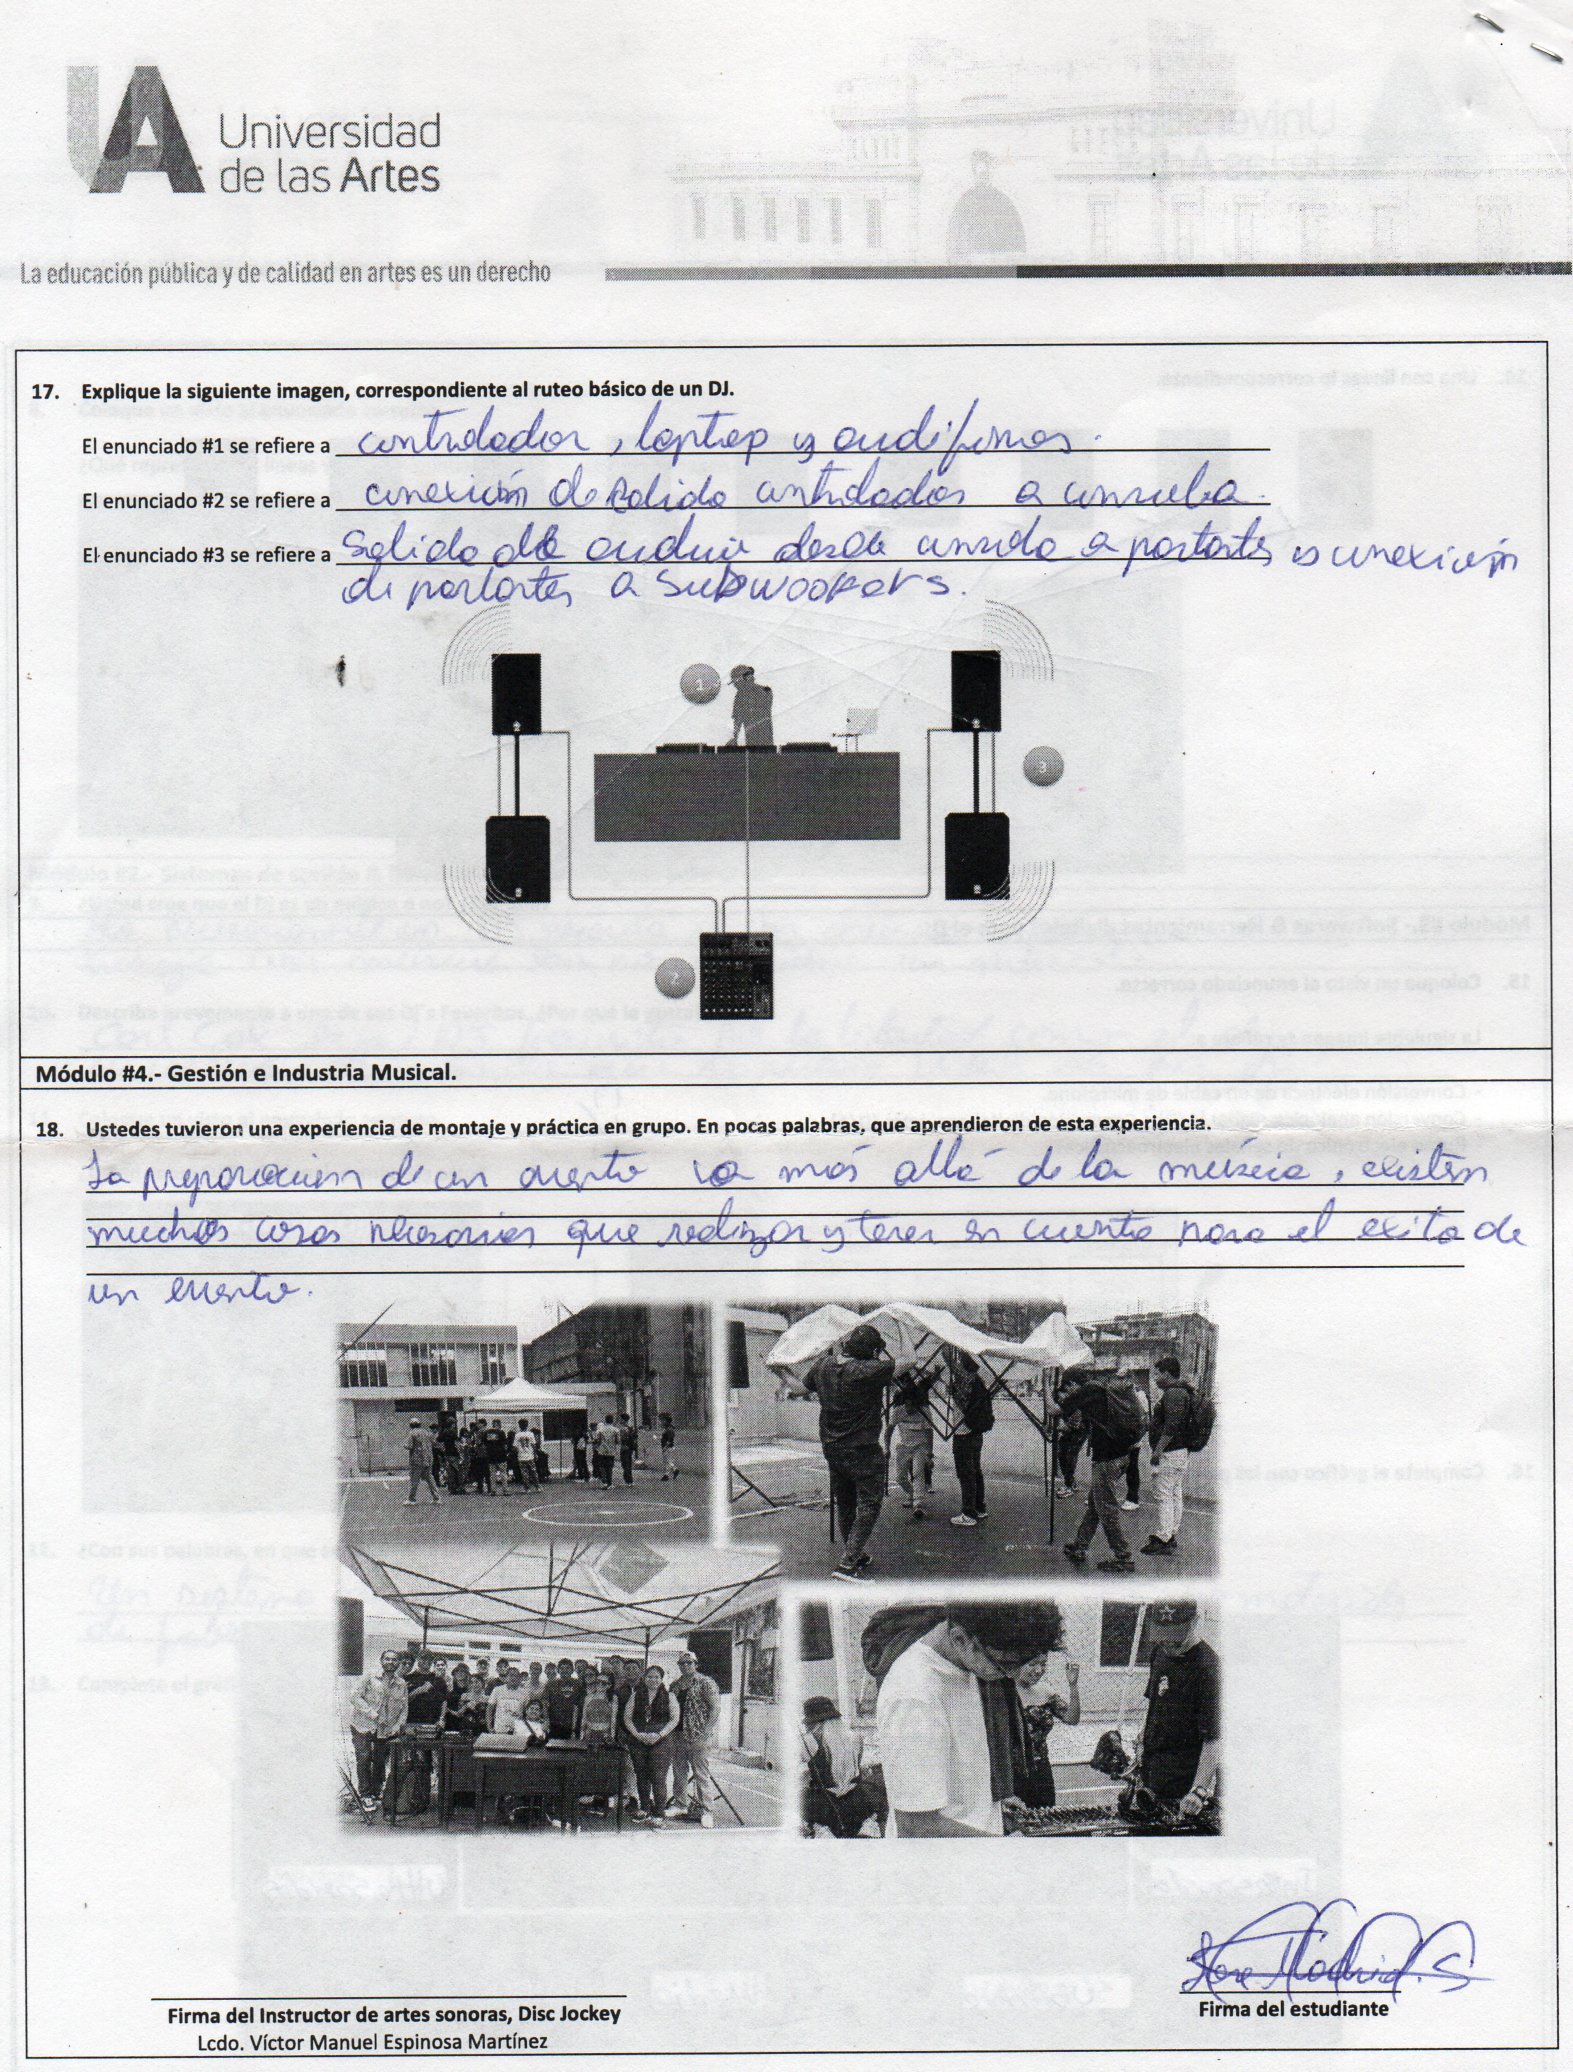 Universidad
de las Artes
La educación pública y de calidad en artes es un derecho
17. Explique la siguiente imagen, correspondiente al ruteo básico de un DJ.
El enunciado #1 se refiere a controlador, laptop y audífonos.
El enunciado #2 se refiere a conexión de salida controlador a consola.
El enunciado #3 se refiere a Salida de audio desde consola a parlantes y conexión
de parlantes a subwoofers.
1
3
2
Módulo #4.- Gestión e Industria Musical.
18. Ustedes tuvieron una experiencia de montaje y práctica en grupo. En pocas palabras, que aprendieron de esta experiencia.
La preparación de un evento va más allá de la música, existen
muchas cosas necesarias que realizar y tener en cuenta para el exito de
un evento.
Firma del Instructor de artes sonoras, Disc Jockey
Firma del estudiante
Lcdo. Víctor Manuel Espinosa Martínez